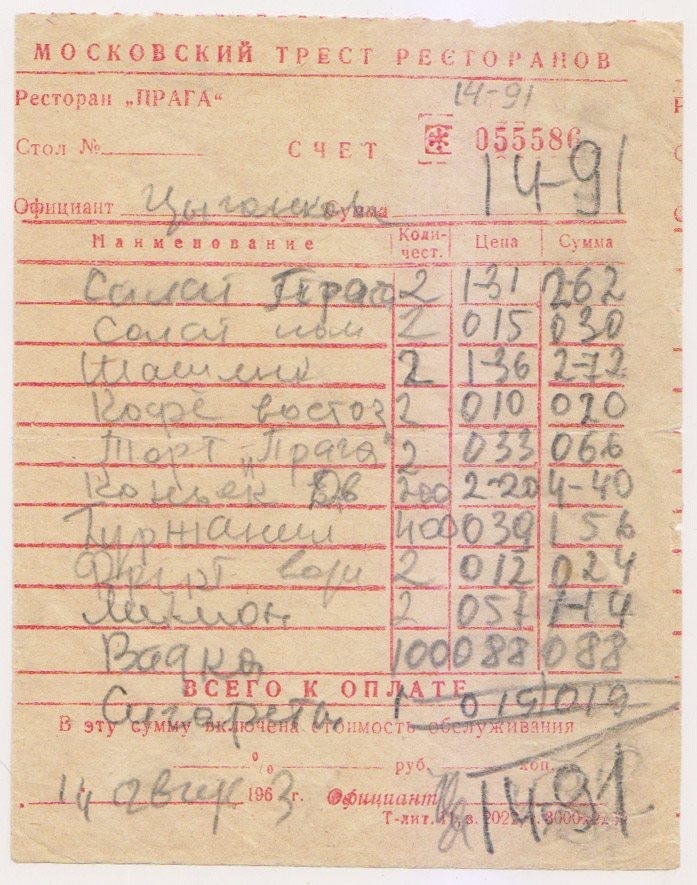 МОСКОВСКИЙ ТРЕСТ РЕСТОРАНОВ
Ресторан „ПРАГА“ 14-91
Стол № СЧЕТ 055586
Официант Сумма 14-91
Наименование Коли-чест. Цена Сумма
Салат Прага 2 1-31 2-62
Салат 2 015 030
Шашлык 2 1-36 2-72
Кофе восточ 2 010 020
Торт „Прага“ 2 033 066
Коньяк 200 2-20 4-40
Гуржаани 400 039 156
Фрукт воды 2 012 024
Лимон 2 057 1-14
Водка 100 088 088
ВСЕГО К ОПЛАТЕ
Сигареты 1 019 019
В эту сумму включена стоимость обслуживания
% руб. коп.
14 август 1963 г. Официант 14-91
Т-лит.